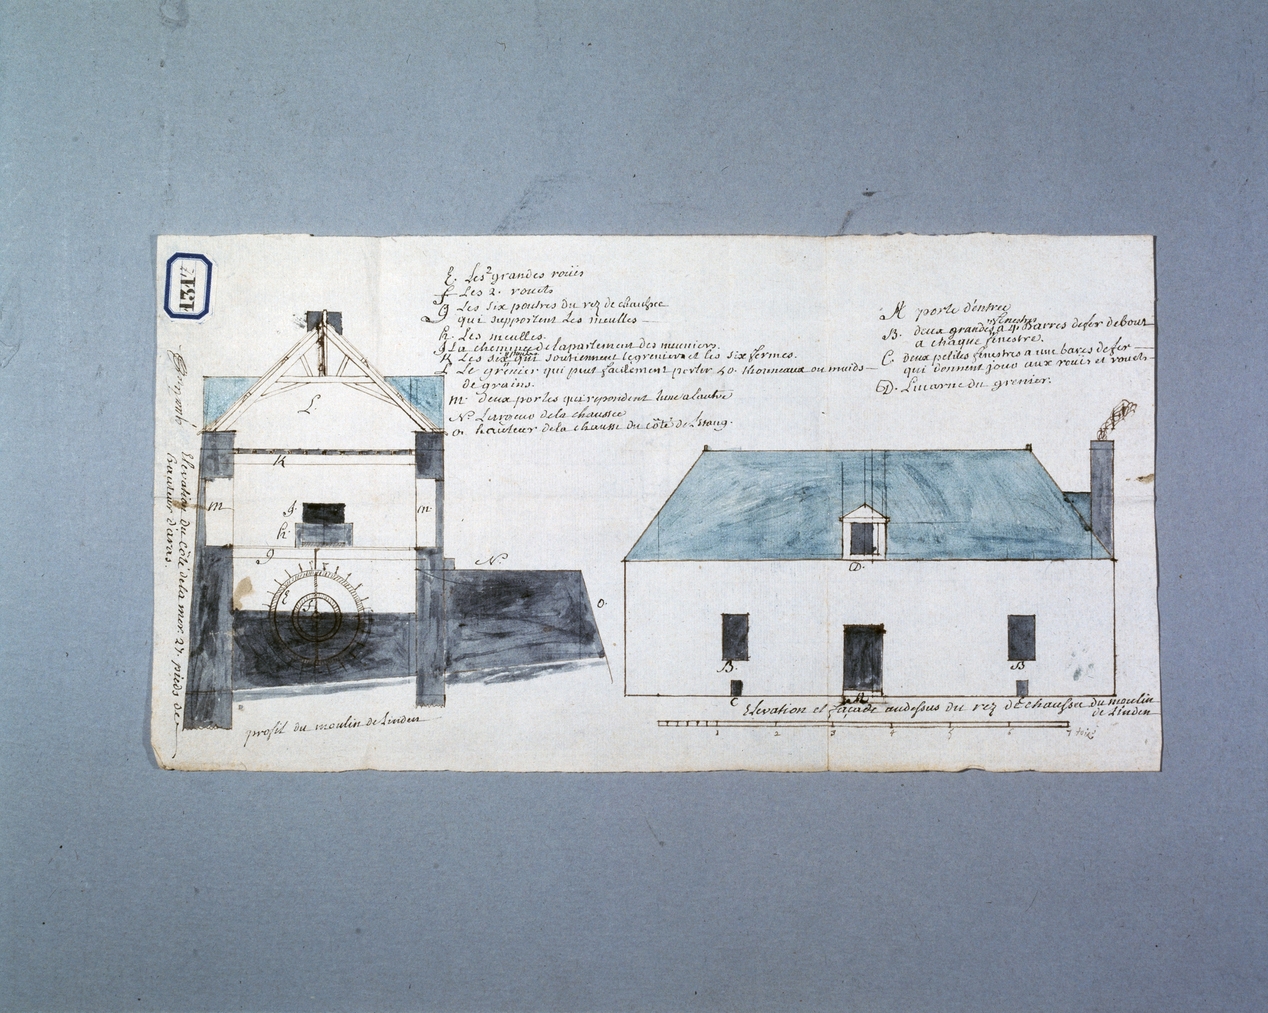 131
E. Les 2 grandes roües
f Les 2. rouets
g Les six poutres du rez de chaussee
qui supportent Les meulles
h. Les meulles.
J La cheminee de lapartement des meuniers.
K Les six poutres qui soutiennent le grenier et les six fermes.
L Le grenier qui peut facilement porter 40. thonneaux ou muids
de grains.
m. deux portes qui repondent lune a lautre
N. Largeur de la chaussée
o. hauteur de la chaussée du côté de l'étang.
A porte d'entree
B. deux grandes fenestres a 4. Barres de fer debout
a chaque finestre.
C. deux petites finestres a une bares de fer
qui donnent jour aux rouës et rouets
D. Lucarne du grenier.
L.
K
m
m
g.
h.
g
N.
E
f
o.
D.
B.
B
C
A
Elevation du côté de la mer. 27. pieds de
hauteur d'aras.
profil du moulin de Linden
Elevation et façade audessus du rez de chaussee du moulin
de Linden
1 2 3 4 5 6 7 toises